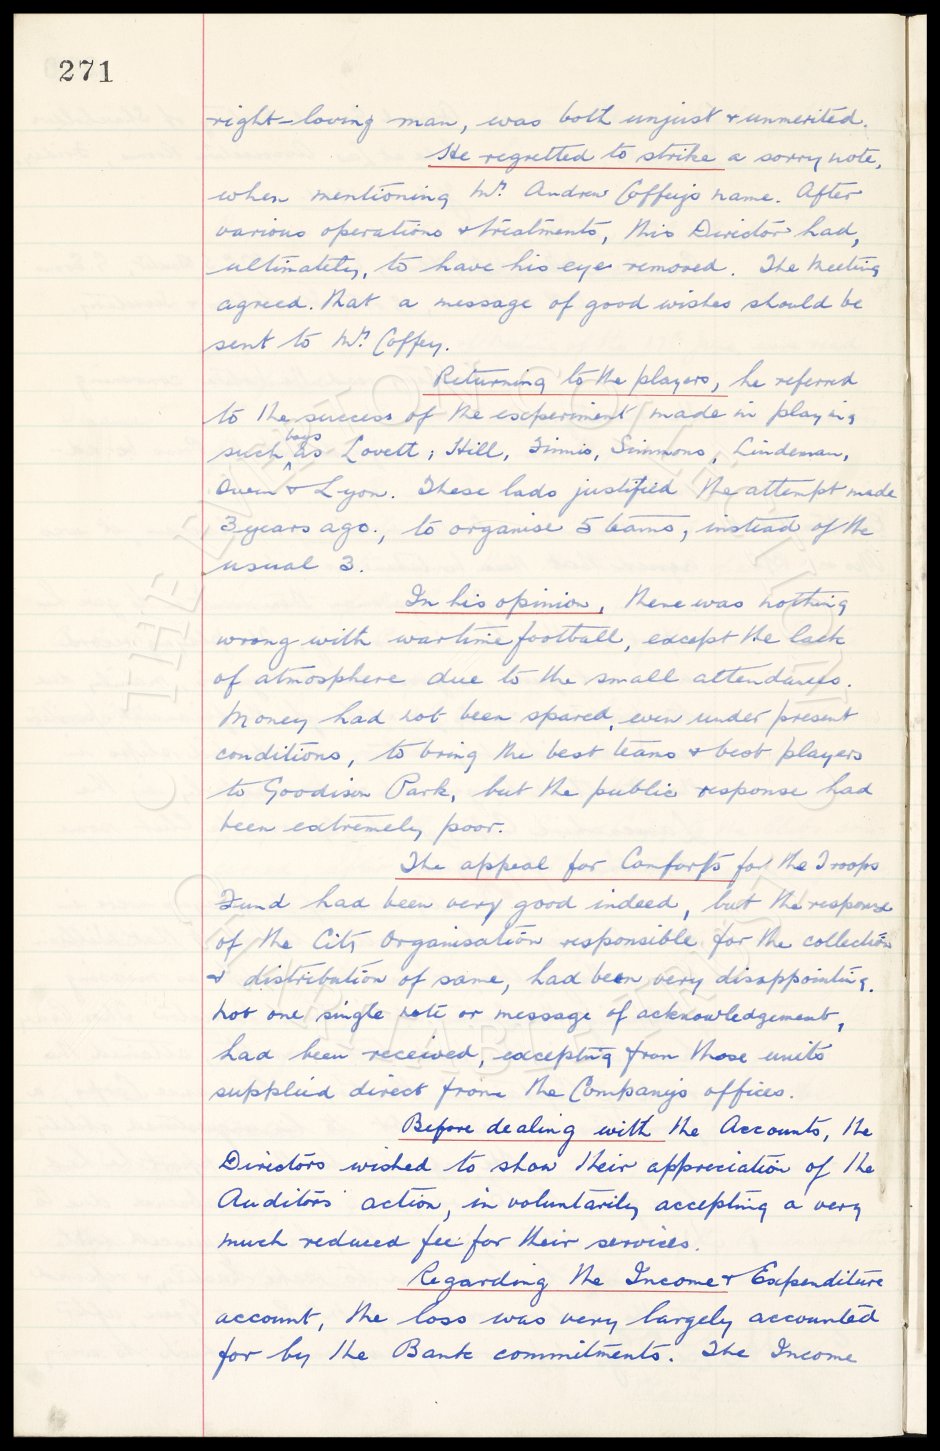 271
right-loving man, was both unjust & unmerited.
He regretted to strike a sorry note,
when mentioning Mr. Andrew Coffey's name. After
various operations & treatments, this Director had,
ultimately, to have his eye removed. The Meeting
agreed that a message of good wishes should be
sent to Mr. Coffey.
Returning to the players, he referred
to the success of the experiment made in playing
such boys as Lovett, Hill, Finnis, Simmons, Lindeman,
Owen & Lyon. These lads justified the attempt made
3 years ago, to organise 5 teams, instead of the
usual 3.
In his opinion, there was nothing
wrong with wartime football, except the lack
of atmosphere due to the small attendances.
Money had not been spared, even under present
conditions, to bring the best teams & best players
to Goodison Park, but the public response had
been extremely poor.
The appeal for Comforts for the Troops
Fund had been very good indeed, but the response
of the City Organisation responsible for the collection
& distribution of same, had been very disappointing.
Not one single note or message of acknowledgement,
had been received, excepting from those units
supplied direct from the Company's offices.
Before dealing with the Accounts, the
Directors wished to show their appreciation of the
Auditors' action, in voluntarily accepting a very
much reduced fee for their services.
Regarding the Income & Expenditure
account, the loss was very largely accounted
for by the Bank commitments. The Income
THE EVERTON COLLECTION
CHARITABLE TRUST